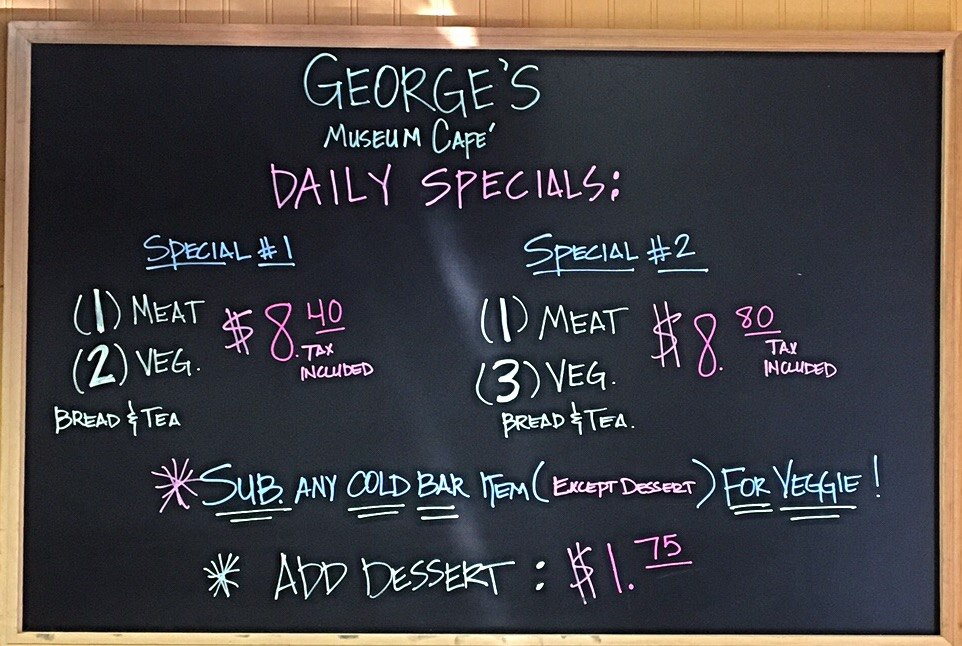 GEORGE'S
MUSEUM CAFÉ
DAILY SPECIALS:
SPECIAL #1
(1) MEAT
(2) VEG.
BREAD & TEA
$8.40
TAX
INCLUDED
SPECIAL #2
(1) MEAT
(3) VEG.
BREAD & TEA.
$8.80
TAX
INCLUDED
* SUB. ANY COLD BAR ITEM (EXCEPT DESSERT) FOR VEGGIE!
* ADD DESSERT: $1.75